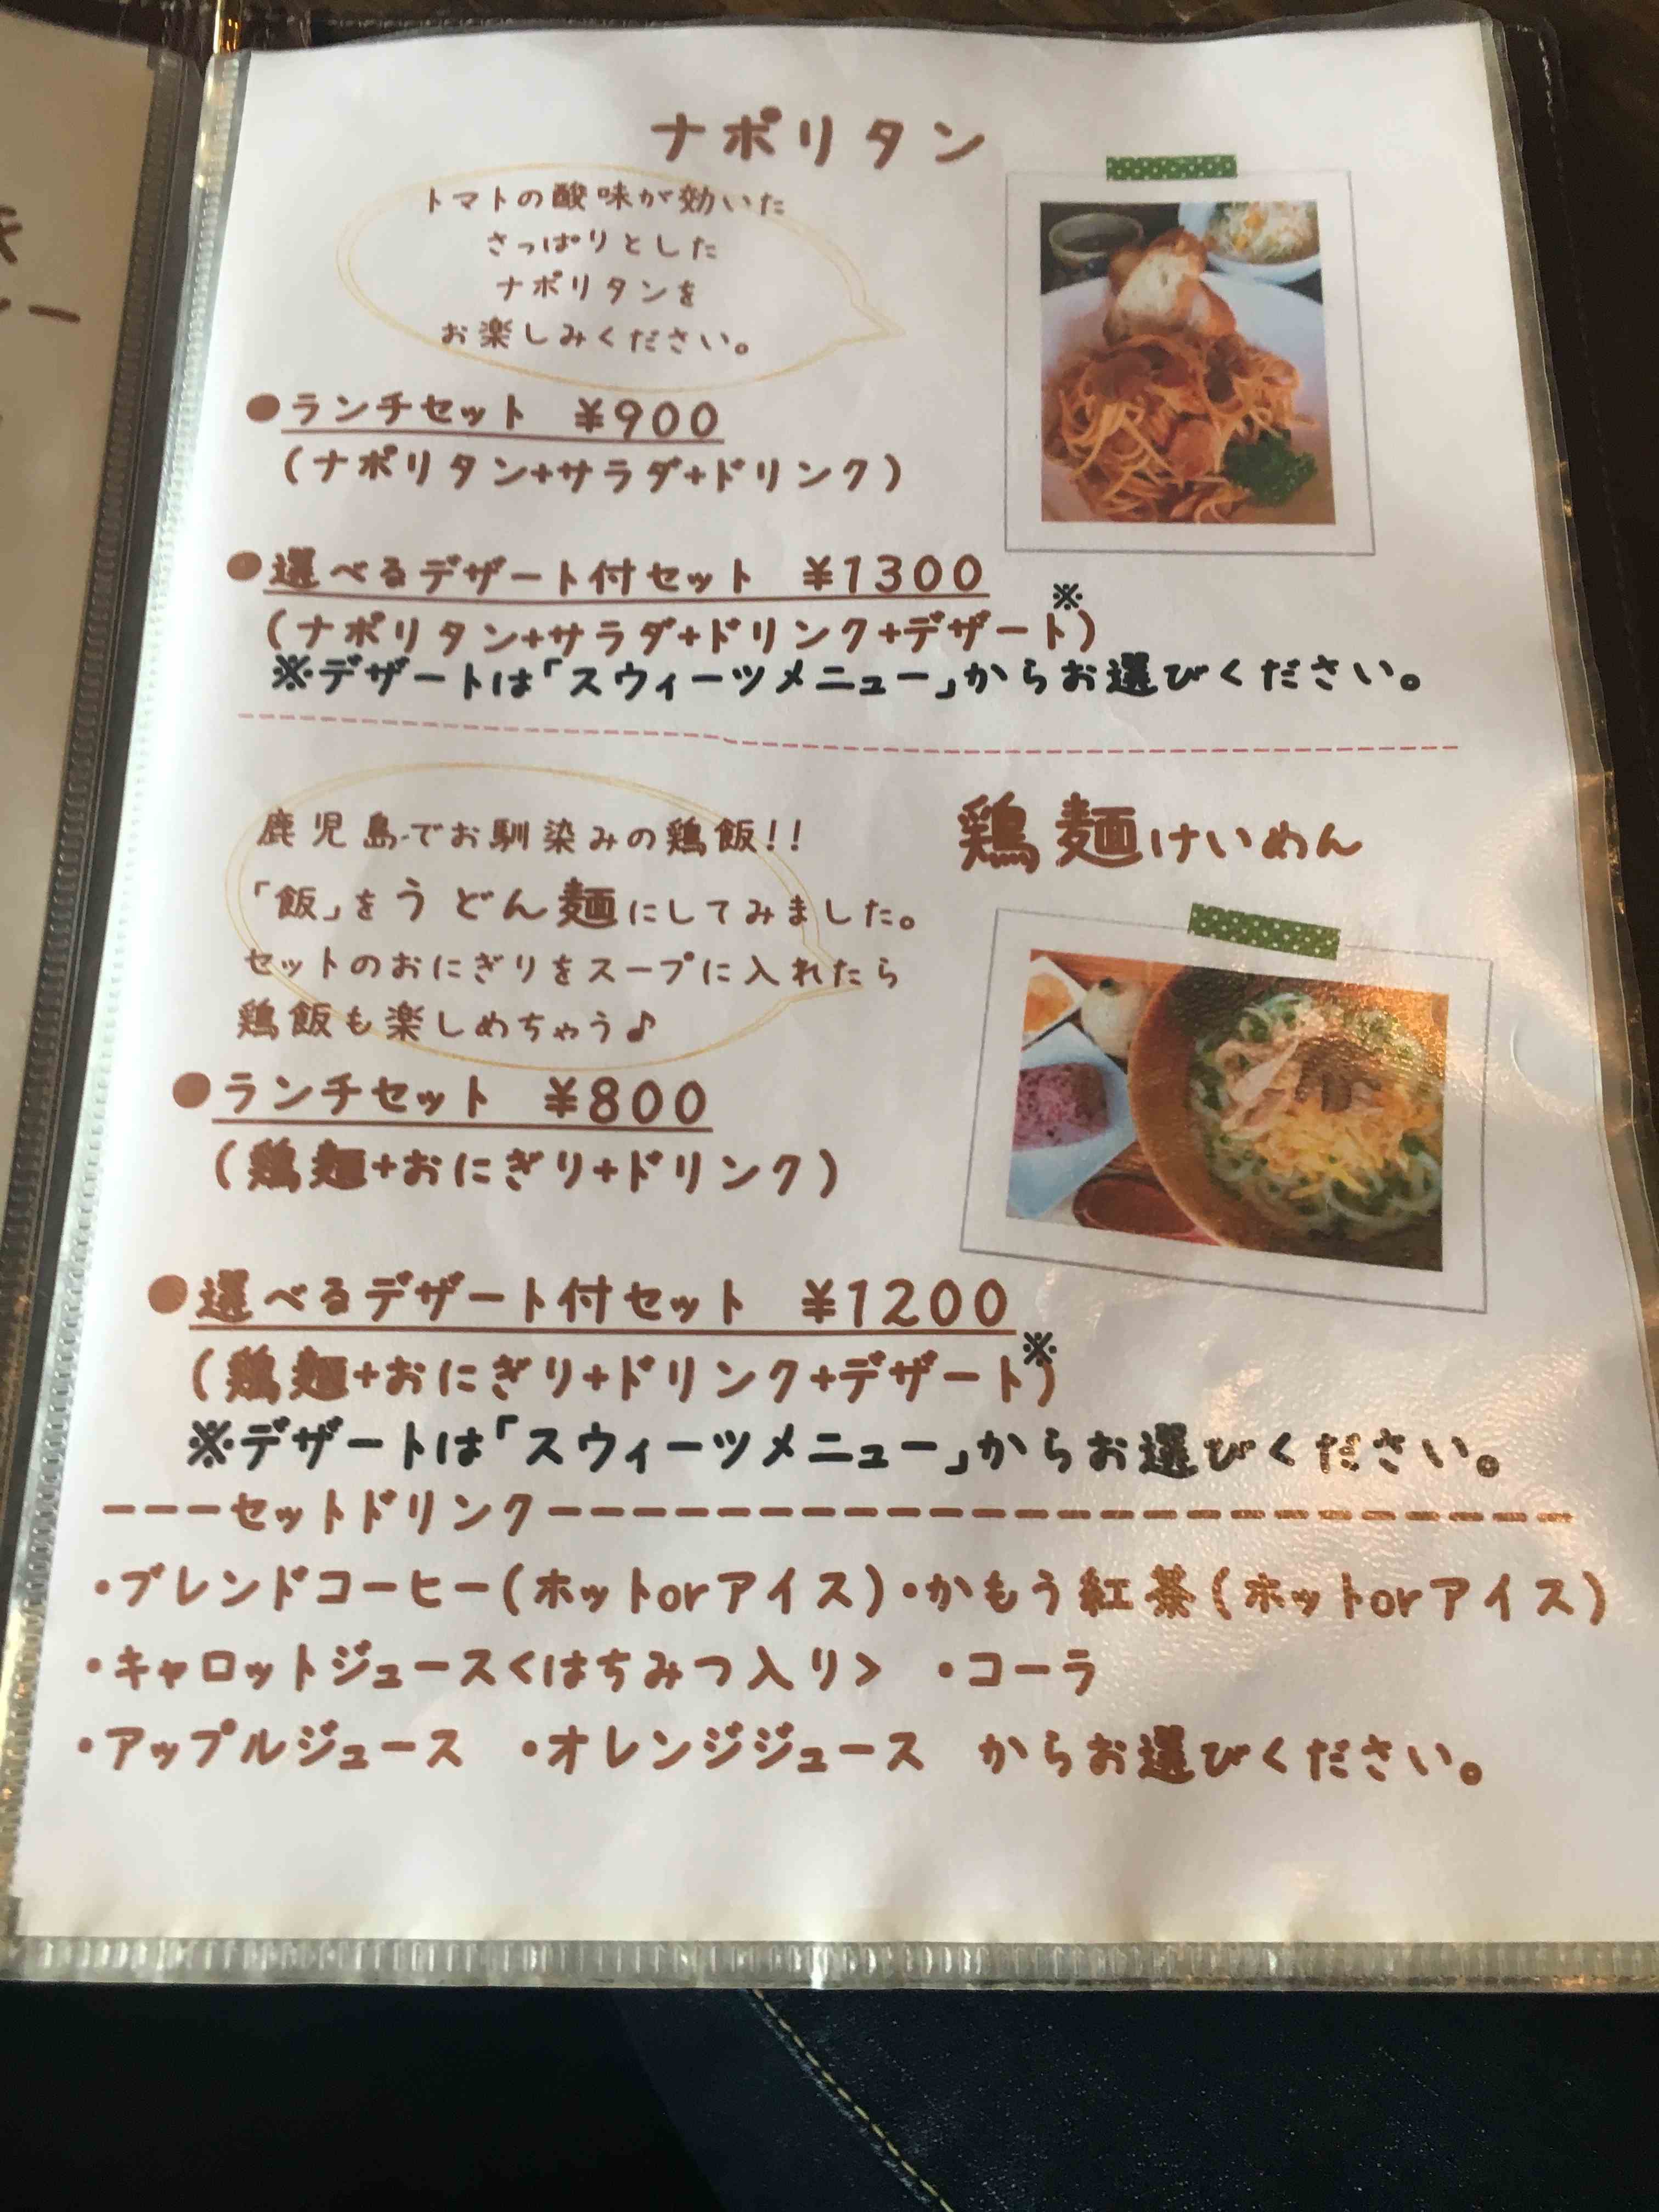 ナポリタン
トマトの酸味が効いた
さっぱりとした
ナポリタンを
お楽しみください。
●ランチセット ¥900
(ナポリタン+サラダ+ドリンク)
●選べるデザート付セット ¥1300
(ナポリタン+サラダ+ドリンク+デザート※)
※デザートは「スウィーツメニュー」からお選びください。
鶏麺けいめん
鹿児島でお馴染みの鶏飯!!
「飯」をうどん麺にしてみました。
セットのおにぎりをスープに入れたら
鶏飯も楽しめちゃう♪
●ランチセット ¥800
(鶏麺+おにぎり+ドリンク)
●選べるデザート付セット ¥1200
(鶏麺+おにぎり+ドリンク+デザート※)
※デザートは「スウィーツメニュー」からお選びください。
---セットドリンク------------------------
・ブレンドコーヒー(ホットorアイス)・かもう紅茶(ホットorアイス)
・キャロットジュース<はちみつ入り> ・コーラ
・アップルジュース ・オレンジジュース からお選びください。